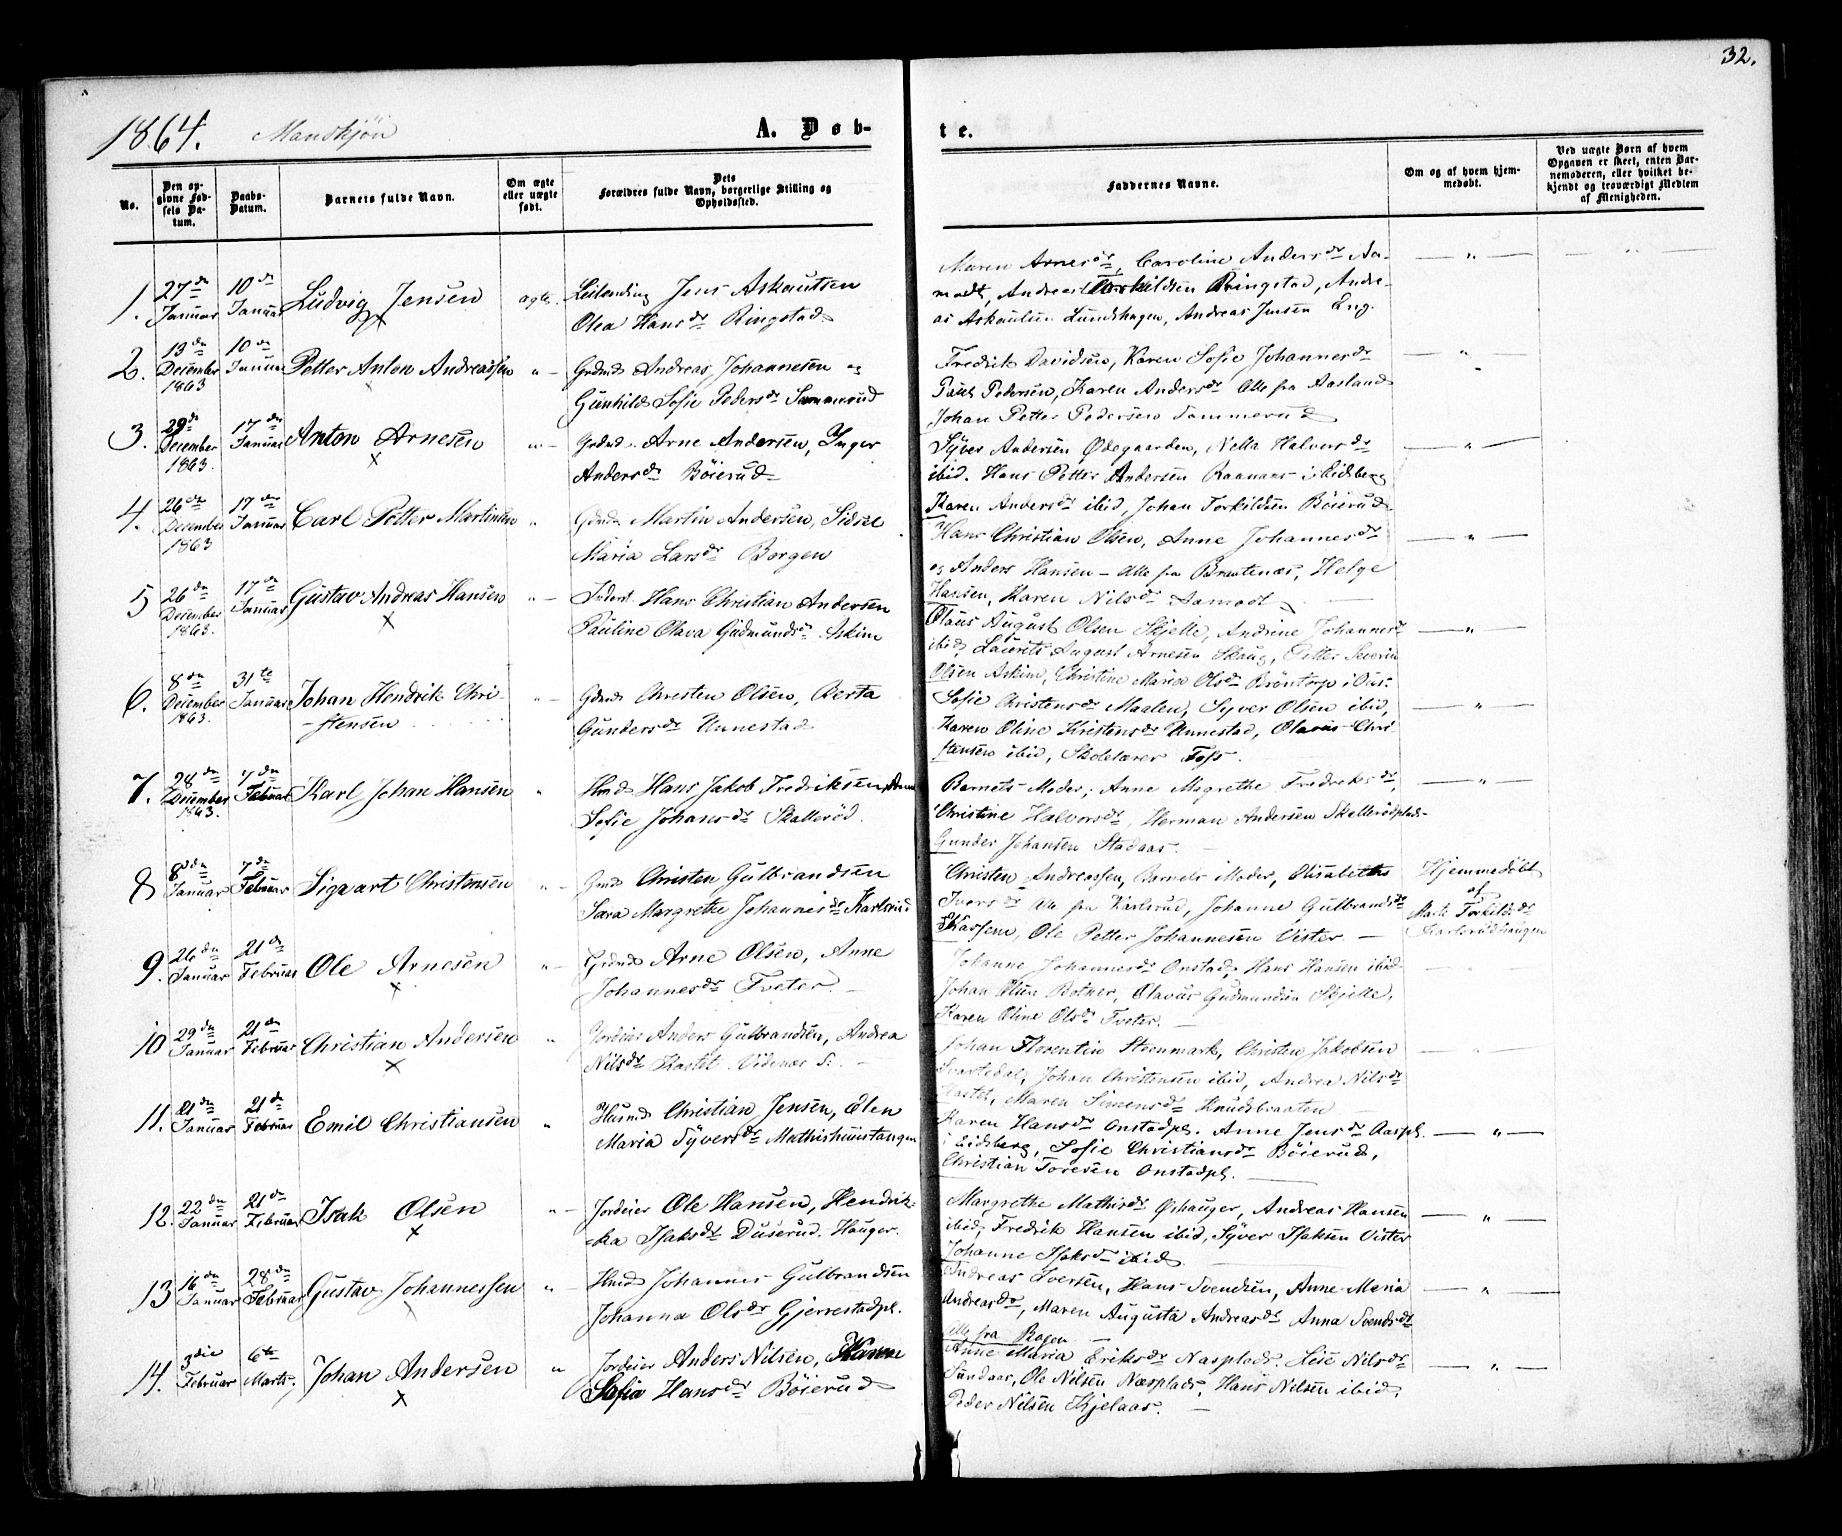 32.
1864. Mandkjøn A. Døb- te.
No.
Den op-
givne Fød-
sels Da-
tum.
Daabs-
Datum.
Barnets fulde Navn.
Om ægte
eller uægte
født.
Dets
Forældres fulde Navn, borgerlige Stilling og
Opholdssted.
Faddernes Navne.
Om og af hvem hjem-
medøbt.
Ved uægte Børn af hvem
Opgaven er skeet, enten Bar-
nemoderen, eller hvilket be-
kjendt og troværdigt Medlem
af Menigheden.
1. 27de Januar 10de Januar Ludvig Jensen ægte
Leilending Jens Askautsen
Olea Hansdr Ringstad
Maren Arnesdr, Caroline Andersdr Aa-
modt, Andreas Torkildsen Ringstad, Andre-
as Askautsen Lundshagen, Andreas Jensen Eng.
2. 13de December 1863 10de Januar Petter Anton Andreassen "
Grdmd Andreas Johannesen og
Gunhild Sofie Pedersdr Sammerud
Fredrik Davidsen, Karen Sofie Johannesdr
Paul Pedersen, Karen Andersdr Alle fra Aasland
Johan Petter Pedersen Sammerud
3. 29de December 1863. 17de Januar Anton Arnesen "
Grdmd. Arne Andersen, Inger
Andersdr Böierud
Syver Andersen Ødegaarden, Nella Halvorsdr
ibid. Hans Petter Andersen Raanaas i Eidsberg
Karen Andersdr ibid, Johan Torkildsen Böierud
4. 26de December 1863 17de Januar Carl Petter Martinsen "
Grdmd Martin Andersen, Sidsel
Maria Larsdr Borgen
Hans Christian Olsen, Anne Johannesdr
og Anders Hansen - Alle fra Brautenæs, Helge
Hansen, Karen Nilsdr Aamodt
5 26de December 1863. 17de Januar Gustav Andreas Hansen "
Inderst Hans Christian Andersen
Pauline Olava Gudmundsdr Askim
Olaus August Olsen Skjelle, Andrine Johannesdr
ibid, Laurits August Arnesen Skaug, Petter Severin
Olsen Askim, Christine Maria Olsdr Bröntorp
6. 8de December 1863. 31te Januar Johan Hendrik Chri-
-stensen "
Grdmd Christen Olsen, Berta
Gundersdr Unnestad
Sofie Christensdr Maalen, Syver Olsen ibid,
Karen Oline Kristensdr Unnestad, Olavus Chri-
stensen ibid, Skolelærer Foss.
7. 28de December 1863. 7de Februar Karl Johan Hansen "
Hmd Hans Jakob Fredriksen, Anne
Sofie Johansdr Skallerød.
Barnets Moder, Anne Magrethe Fredriksdr,
Christine Halvorsdr, Herman Andersen Skallerødplads-
Gunder Johansen Stadaas.
8 8de Januar 7de Februar Sigvart Christensen "
Gmd Christen Gulbrandsen
Sara Margrethe Johannesdr Karlsrud
Christen Andreassen, Barnets Moder, Elisabeth
Iversdr Alle fra Karlsrud, Johanne Gulbrandsdr
Kassene, Ole Petter Johannesen Vister. -
Hjemmedøbt
af
Marte Torkildsdr
Karlsrudhaugen
9. 26de Januar 21de Februar Ole Arnesen "
Grdmd Arne Olsen, Anne
Johannesdr Tveter.
Johanne Johannesdr Onstad, Hans Hansen ibid.
Johan Olsen Botner, Olavus Gudmundsen Skjelle,
Karen Oline Olsdr Tveter.
10 29de Januar 21de Februar Christian Andersen "
Jordeier Anders Gulbrandsen, Andrea
Nilsdr Kastet
Johan Florentin Steenmark, Christen Jakobsen
Svartedal, Johan Christensen ibid, Andrea Nilsdr
Kastet, Maren Simensdr Knudsbraaten
11. 21de Januar 21de Februar Emil Christiansen "
Husmd Christian Jensen, Elen
Maria Syversdr Mathishuustangen
Karen Hansdr Onstadpl. Anne Jensdr Aaspl.
i Eidsberg, Sofie Christiansdr Böierud,
Christian Toresen Onstadpl.
12. 22de Januar 21de Februar Isak Olsen "
Jordeier Ole Hansen, Hendrik-
-ka Isaksdr Duserud. Hauger.
Margrethe Mathisdr Øshauger, Andreas Hansen
ibid, Fredrik Hansen ibid, Syver Isaksen Vister
Johanne Isaksdr ibid
13 16de Januar 28de Februar Gustav Johannessen "
Hmd Johannes Gulbrandsen
Johanna Olsdr Gjerrestadpl.
Andreas Iversen, Hans Svendsen, Anne Maria
Andreasdr, Maren Augusta Andreasdr Anna Svendsdr
Alle fra Ragen
14. 3die Februar 6te Marts. Johan Andersen "
Jordeier Anders Nilsen, Karen
Sofia Hansdr Böierud
Anne Maria Eriksdr Næsplads. Lise Nilsdr
Sandaas, Ole Nilsen Næsplads, Hans Nilsen ibid,
Peder Nilsen Kjelaas.